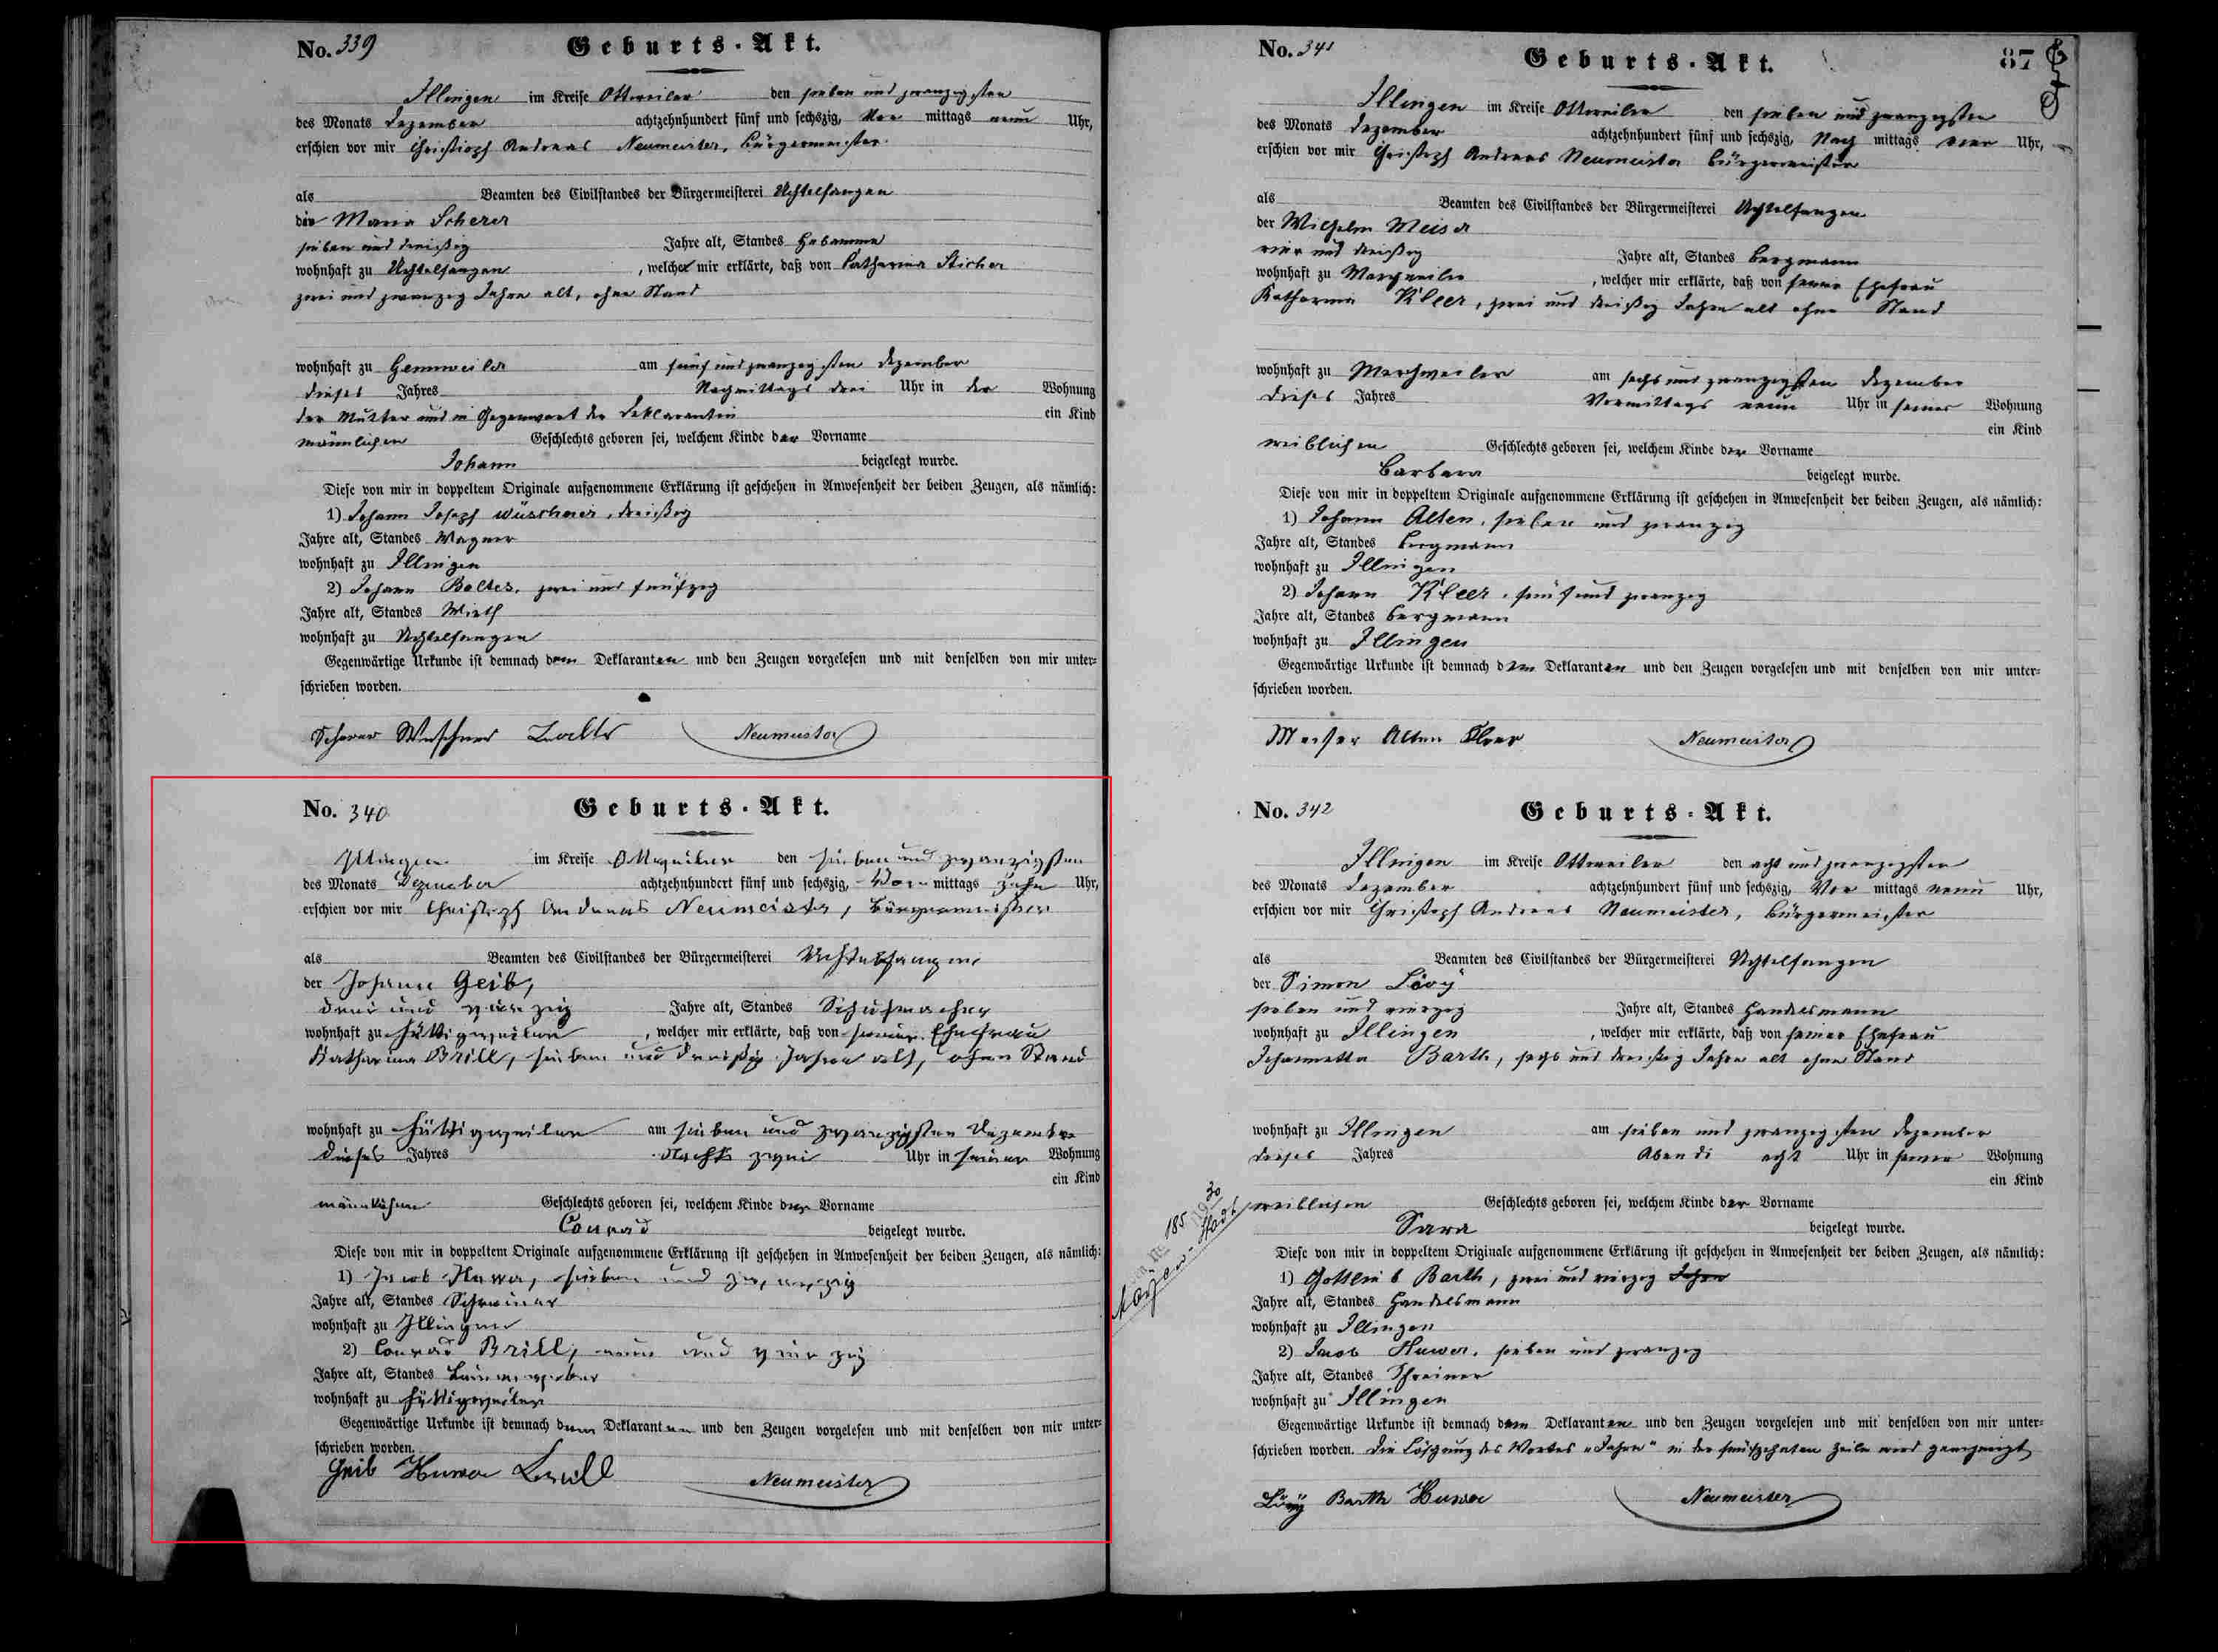 No. 339 Geburts-Akt.
Illingen im Kreise Ottweiler den sieben und zwanzigsten
des Monats Dezember achtzehnhundert fünf und sechszig, Vor mittags neun Uhr,
erschien vor mir Christoph Andreas Neumeister, Bürgermeister
als Beamten des Civilstandes der Bürgermeisterei Uchtelfangen
die Maria Scherer
sieben und dreißig Jahre alt, Standes Hebamme
wohnhaft zu Uchtelfangen, welche mir erklärte, daß von Catharina Sticher
zwei und zwanzig Jahre alt, ohne Stand
wohnhaft zu Gennweiler am fünf und zwanzigsten Dezember
dieses Jahres Nachmittags drei Uhr in der Wohnung
der Mutter und in Gegenwart der Deklarantin ein Kind
männlichen Geschlechts geboren sei, welchem Kinde der Vorname
Johann beigelegt wurde.
Diese von mir in doppeltem Originale aufgenommene Erklärung ist geschehen in Anwesenheit der beiden Zeugen, als nämlich:
1) Johann Joseph Wüschner, dreißig
Jahre alt, Standes Wagner
wohnhaft zu Illingen
2) Johann Boltes, zwei und fünfzig
Jahre alt, Standes Wirth
wohnhaft zu Uchtelfangen
Gegenwärtige Urkunde ist demnach dem Deklaranten und den Zeugen vorgelesen und mit denselben von mir unter-
schrieben worden.
Scherer Neumeister
No. 340 Geburts-Akt.
Illingen im Kreise Ottweiler den sieben und zwanzigsten
des Monats Dezember achtzehnhundert fünf und sechszig, Vor mittags zehn Uhr,
erschien vor mir Christoph Andreas Neumeister, Bürgermeister
als Beamten des Civilstandes der Bürgermeisterei Uchtelfangen
der Johann Geib,
drei und vierzig Jahre alt, Standes Schuhmacher
wohnhaft zu Hüttigweiler, welcher mir erklärte, daß von seiner Ehefrau
Katharina Brill, sieben und dreißig Jahre alt, ohne Stand
wohnhaft zu Hüttigweiler am sieben und zwanzigsten Dezember
dieses Jahres Nachts zwei Uhr in seiner Wohnung
ein Kind
männlichen Geschlechts geboren sei, welchem Kinde der Vorname
Conrad beigelegt wurde.
Diese von mir in doppeltem Originale aufgenommene Erklärung ist geschehen in Anwesenheit der beiden Zeugen, als nämlich:
1) Jacob Huwer, sieben und zwanzig
Jahre alt, Standes Schreiner
wohnhaft zu Illingen
2) Conrad Brill, neun und vierzig
Jahre alt, Standes Leinenweber
wohnhaft zu Hüttigweiler
Gegenwärtige Urkunde ist demnach dem Deklaranten und den Zeugen vorgelesen und mit denselben von mir unter-
schrieben worden.
Geib Huwer Brill Neumeister
87
No. 341 Geburts-Akt.
Illingen im Kreise Ottweiler den sieben und zwanzigsten
des Monats Dezember achtzehnhundert fünf und sechszig, Nach mittags vier Uhr,
erschien vor mir Christoph Andreas Neumeister Bürgermeister
als Beamten des Civilstandes der Bürgermeisterei Uchtelfangen
der Wilhelm Meiser
vier und dreißig Jahre alt, Standes Bergmann
wohnhaft zu Merchweiler, welcher mir erklärte, daß von seiner Ehefrau
Katharina Kleer, zwei und dreißig Jahre alt ohne Stand
wohnhaft zu Merchweiler am sechs und zwanzigsten Dezember
dieses Jahres Vormittags neun Uhr in seiner Wohnung
ein Kind
weiblichen Geschlechts geboren sei, welchem Kinde der Vorname
Barbara beigelegt wurde.
Diese von mir in doppeltem Originale aufgenommene Erklärung ist geschehen in Anwesenheit der beiden Zeugen, als nämlich:
1) Johann Alten, sieben und zwanzig
Jahre alt, Standes Bergmann
wohnhaft zu Illingen
2) Johann Kleer, fünf und zwanzig
Jahre alt, Standes Bergmann
wohnhaft zu Illingen
Gegenwärtige Urkunde ist demnach dem Deklaranten und den Zeugen vorgelesen und mit denselben von mir unter-
schrieben worden.
Meiser Alten Kleer Neumeister
No. 342 Geburts-Akt.
Illingen im Kreise Ottweiler den acht und zwanzigsten
des Monats Dezember achtzehnhundert fünf und sechszig, Vor mittags neun Uhr,
erschien vor mir Christoph Andreas Neumeister, Bürgermeister
als Beamten des Civilstandes der Bürgermeisterei Uchtelfangen
der Simon Lövy
sieben und vierzig Jahre alt, Standes Handelsmann
wohnhaft zu Illingen, welcher mir erklärte, daß von seiner Ehefrau
Johannetta Barth, sechs und dreißig Jahre alt ohne Stand
wohnhaft zu Illingen am sieben und zwanzigsten Dezember
dieses Jahres Abends acht Uhr in seiner Wohnung
ein Kind
weiblichen Geschlechts geboren sei, welchem Kinde der Vorname
Sara beigelegt wurde.
Diese von mir in doppeltem Originale aufgenommene Erklärung ist geschehen in Anwesenheit der beiden Zeugen, als nämlich:
1) Gottlieb Barth, zwei und vierzig Jahre
Jahre alt, Standes Handelsmann
wohnhaft zu Illingen
2) Jacob Huwer, sieben und zwanzig
Jahre alt, Standes Schreiner
wohnhaft zu Illingen
Gegenwärtige Urkunde ist demnach dem Deklaranten und den Zeugen vorgelesen und mit denselben von mir unter-
schrieben worden. Die Löschung des Wortes "Jahre" in der fünfzehnten Zeile wird genehmigt
Lövy Barth Huwer Neumeister